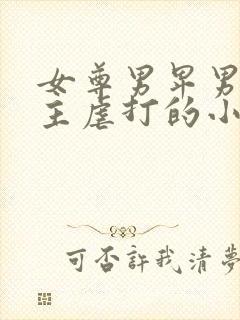 女尊男卑男
主虐打的小
可否許我清夢